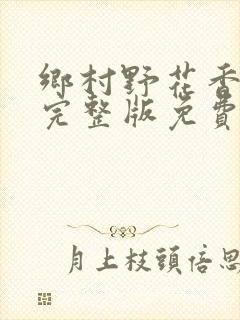 鄉村野花香
完整版免費
月上枝頭倍思